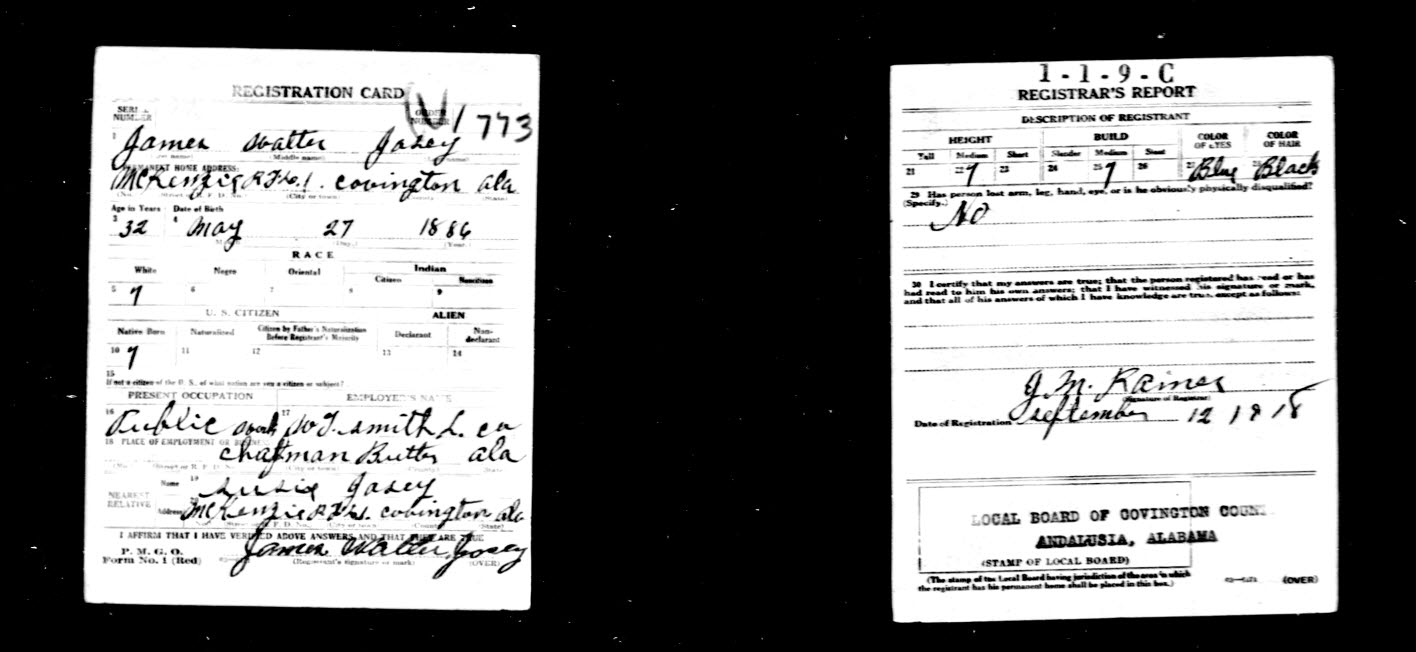 REGISTRATION CARD
SERIAL NUMBER
ORDER NUMBER
1773
1 James Walter Josey
(Middle name)
PERMANENT HOME ADDRESS:
McKenzie R.F.D. 1. Covington Ala
(No.) Street or R. F. D. No.) (City or town) County (State)
Age in Years Date of Birth
3 32 4 May 27 1886
(Day.) (Year.)
RACE
White Negro Oriental Indian
Citizen Noncitizen
5 7 6 7 8 9
U. S. CITIZEN ALIEN
Native Born Naturalized Citizen by Father's Naturalization Before Registrant's Majority Declarant Non-declarant
10 7 11 12 13 14
15
If not a citizen of the U. S., of what nation are you a citizen or subject?
PRESENT OCCUPATION EMPLOYER'S NAME
16 Public work 17 W T. Smith L. co
18 PLACE OF EMPLOYMENT OR BUSINESS
Chapman Butler ala
(No.) Street or R. F. D. No. (City or town) (County) State
NEAREST RELATIVE Name 19 Susie Josey
Address McKenzie R.F.D. 1. Covington ala
(No.) Street or R. F. D. No. (City or town (County (State)
I AFFIRM THAT I HAVE VERIFIED ABOVE ANSWERS AND THAT THEY ARE TRUE
P. M. G. O.
Form No. 1 (Red) James Walter Josey
(Registrant's signature or mark) (OVER)
1-1-9-C
REGISTRAR'S REPORT
DESCRIPTION OF REGISTRANT
HEIGHT BUILD COLOR OF EYES COLOR OF HAIR
Tall Medium Short Slender Medium Stout
21 22 7 23 24 25 7 26 27 Blue 28 Black
29 Has person lost arm, leg, hand, eye, or is he obviously physically disqualified?
(Specify.)
No
30 I certify that my answers are true; that the person registered has read or has
had read to him his own answers; that I have witnessed his signature or mark,
and that all of his answers of which I have knowledge are true, except as follows:
J. M. Raines
(Signature of Registrar)
Date of Registration September 12 1918
LOCAL BOARD OF COVINGTON COUN
ANDALUSIA, ALABAMA
(STAMP OF LOCAL BOARD)
(The stamp of the Local Board having jurisdiction of the area in which
the registrant has his permanent home shall be placed in this box.)
(OVER)